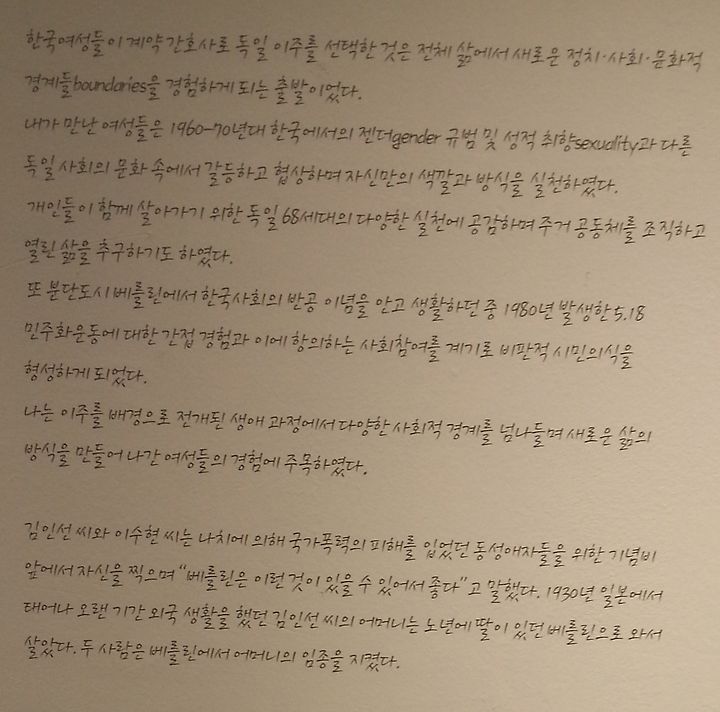 한국여성들이 계약 간호사로 독일 이주를 선택한 것은 전체 삶에서 새로운 정치·사회·문화적
경계들boundaries을 경험하게 되는 출발이었다.
내가 만난 여성들은 1960-70년대 한국에서의 젠더gender 규범 및 성적 취향sexuality과 다른
독일 사회의 문화 속에서 갈등하고 협상하며 자신만의 색깔과 방식을 실천하였다.
개인들이 함께 살아가기 위한 독일 68세대의 다양한 실천에 공감하며 주거 공동체를 조직하고
열린 삶을 추구하기도 하였다.
또 분단도시 베를린에서 한국사회의 반공 이념을 안고 생활하던 중 1980년 발생한 5.18
민주화운동에 대한 간접 경험과 이에 항의하는 사회참여를 계기로 비판적 시민의식을
형성하게 되었다.
나는 이주를 배경으로 전개된 생애 과정에서 다양한 사회적 경계를 넘나들며 새로운 삶의
방식을 만들어 나간 여성들의 경험에 주목하였다.
김인선 씨와 이수현 씨는 나치에 의해 국가폭력의 피해를 입었던 동성애자들을 위한 기념비
앞에서 자신을 찍으며 “베를린은 이런 것이 있을 수 있어서 좋다”고 말했다. 1930년 일본에서
태어나 오랜 기간 외국 생활을 했던 김인선 씨의 어머니는 노년에 딸이 있던 베를린으로 와서
살았다. 두 사람은 베를린에서 어머니의 임종을 지켰다.